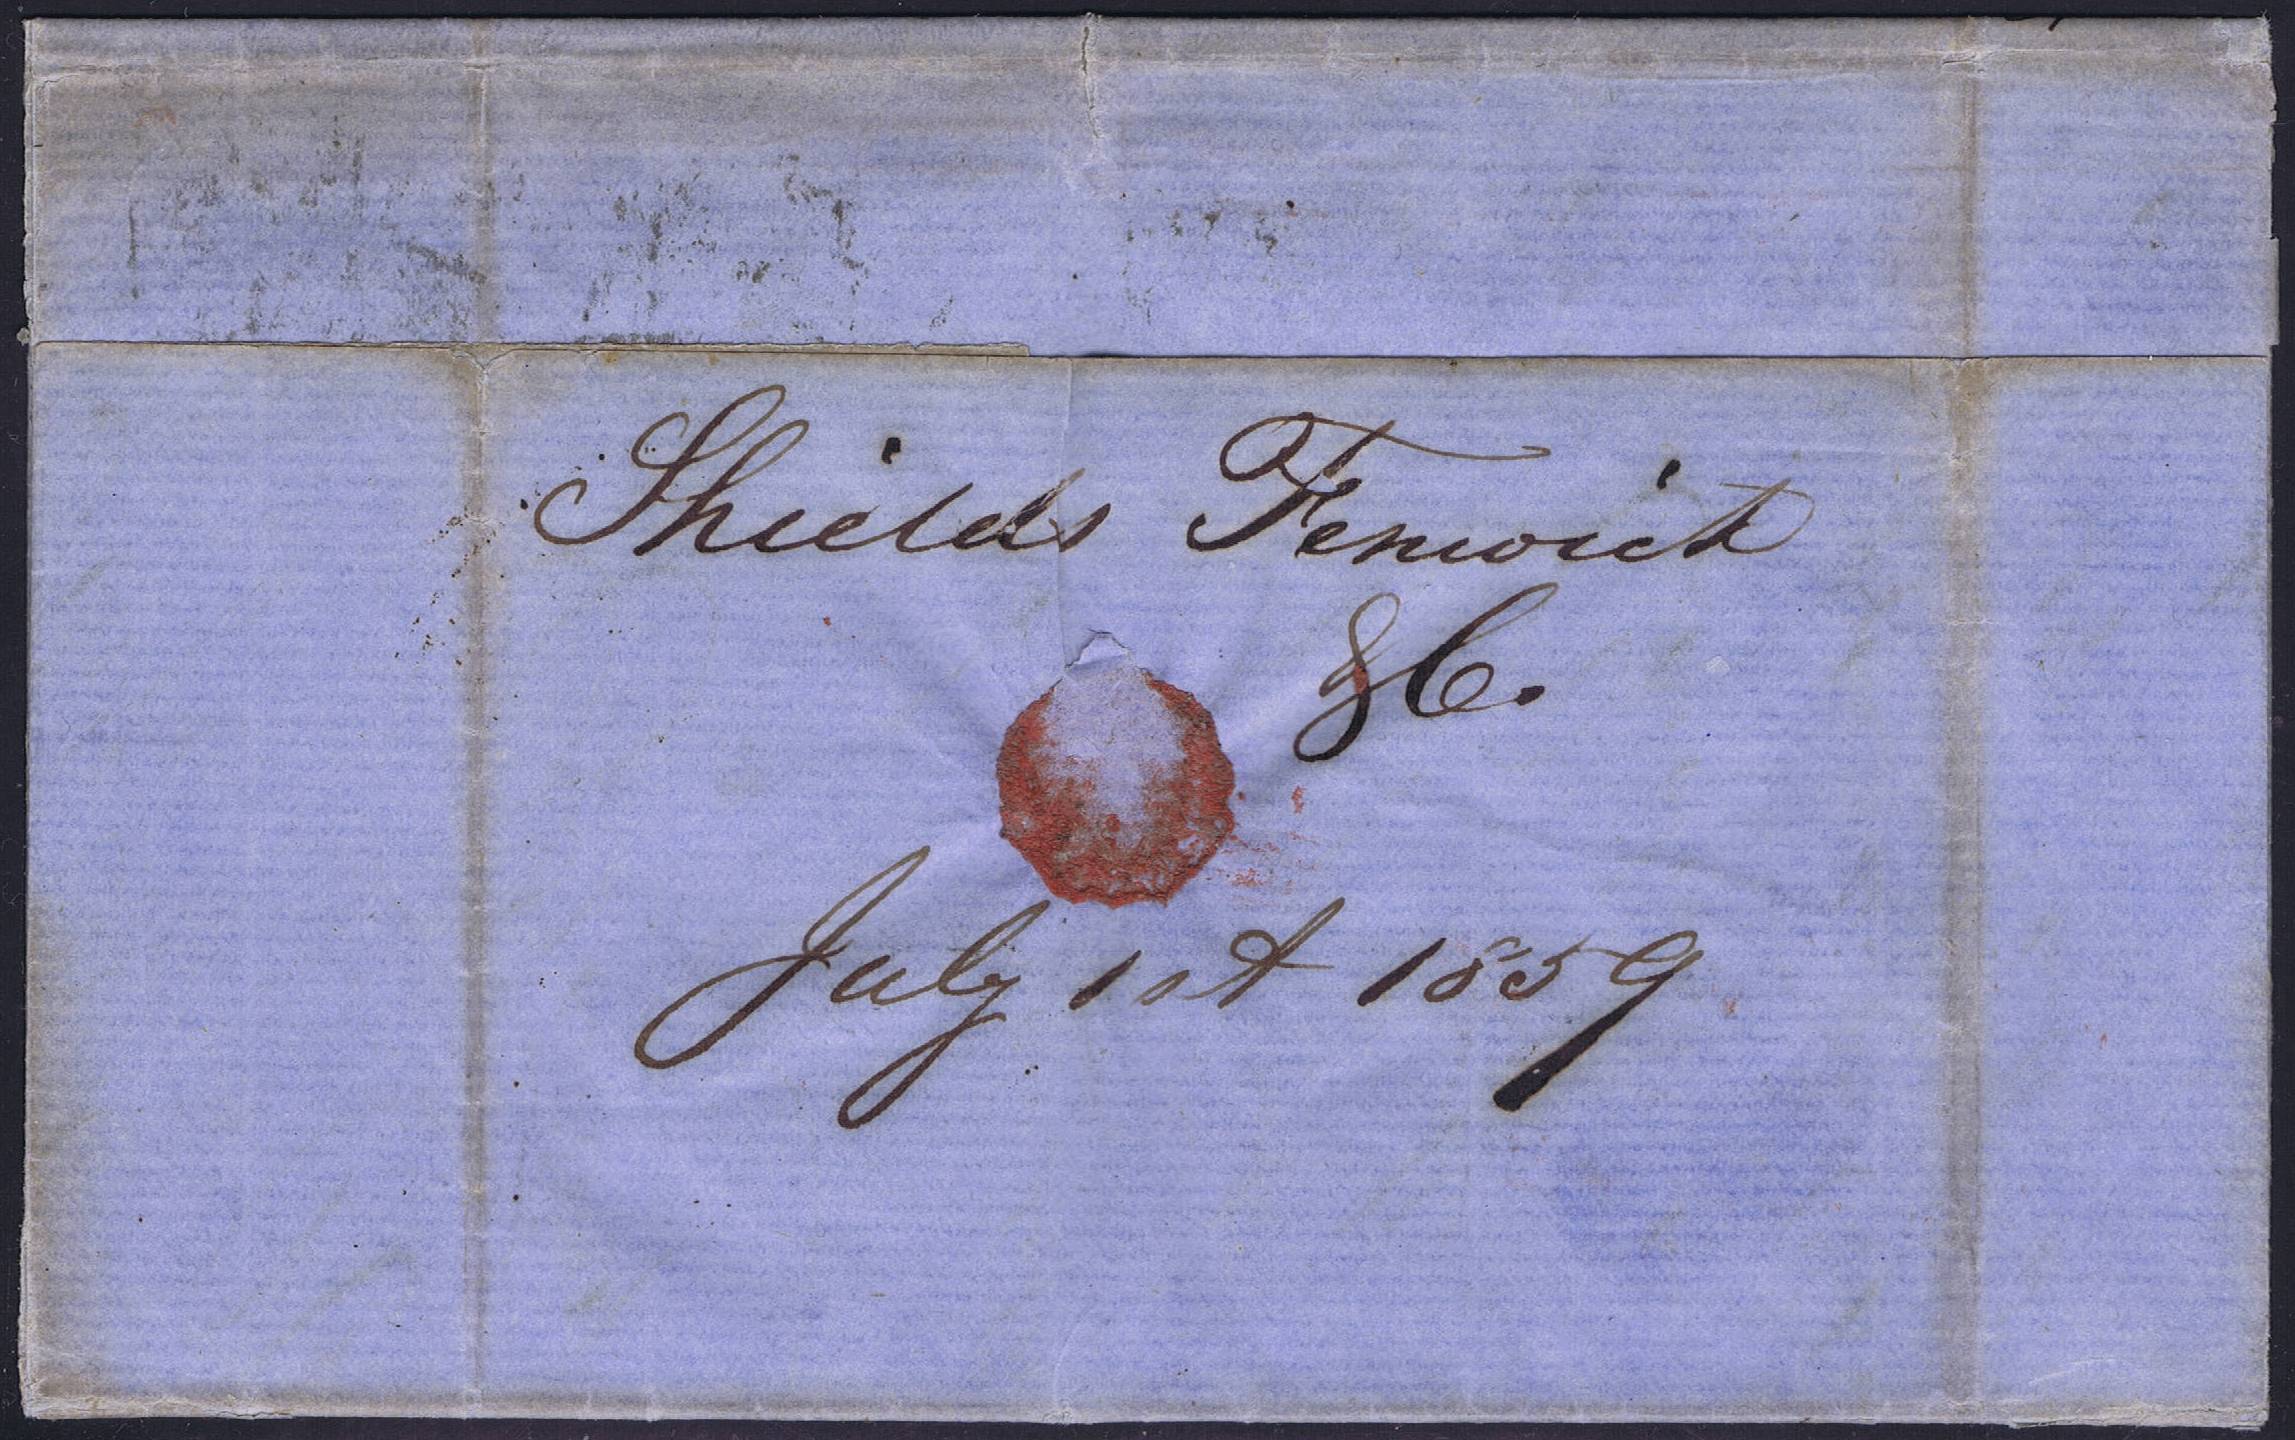 Shields Fenwick
& C.
July 1st 1859